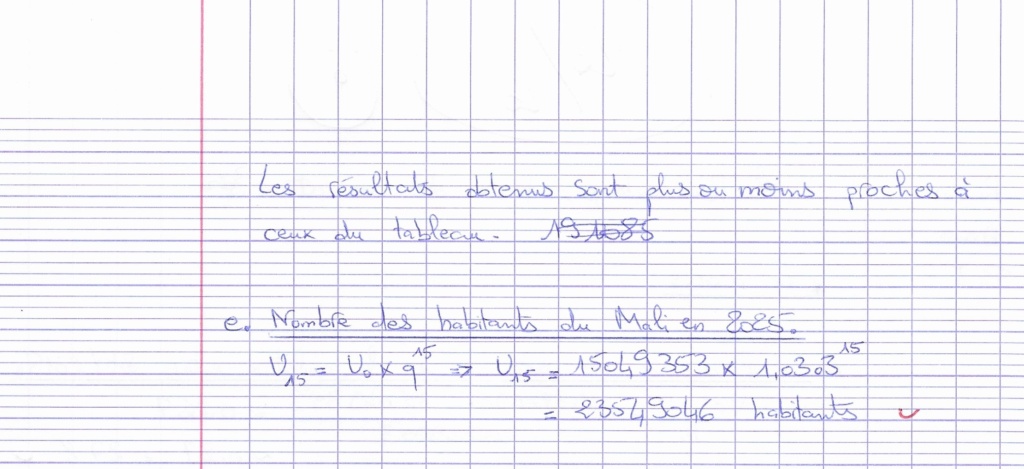 Les résultats obtenus sont plus ou moins proches à
ceux du tableau.
e. Nombre des habitants du Mali en 2025.
U₁₅ = U₀ × q¹⁵ => U₁₅ = 15049353 × 1,0303¹⁵
= 23549046 habitants